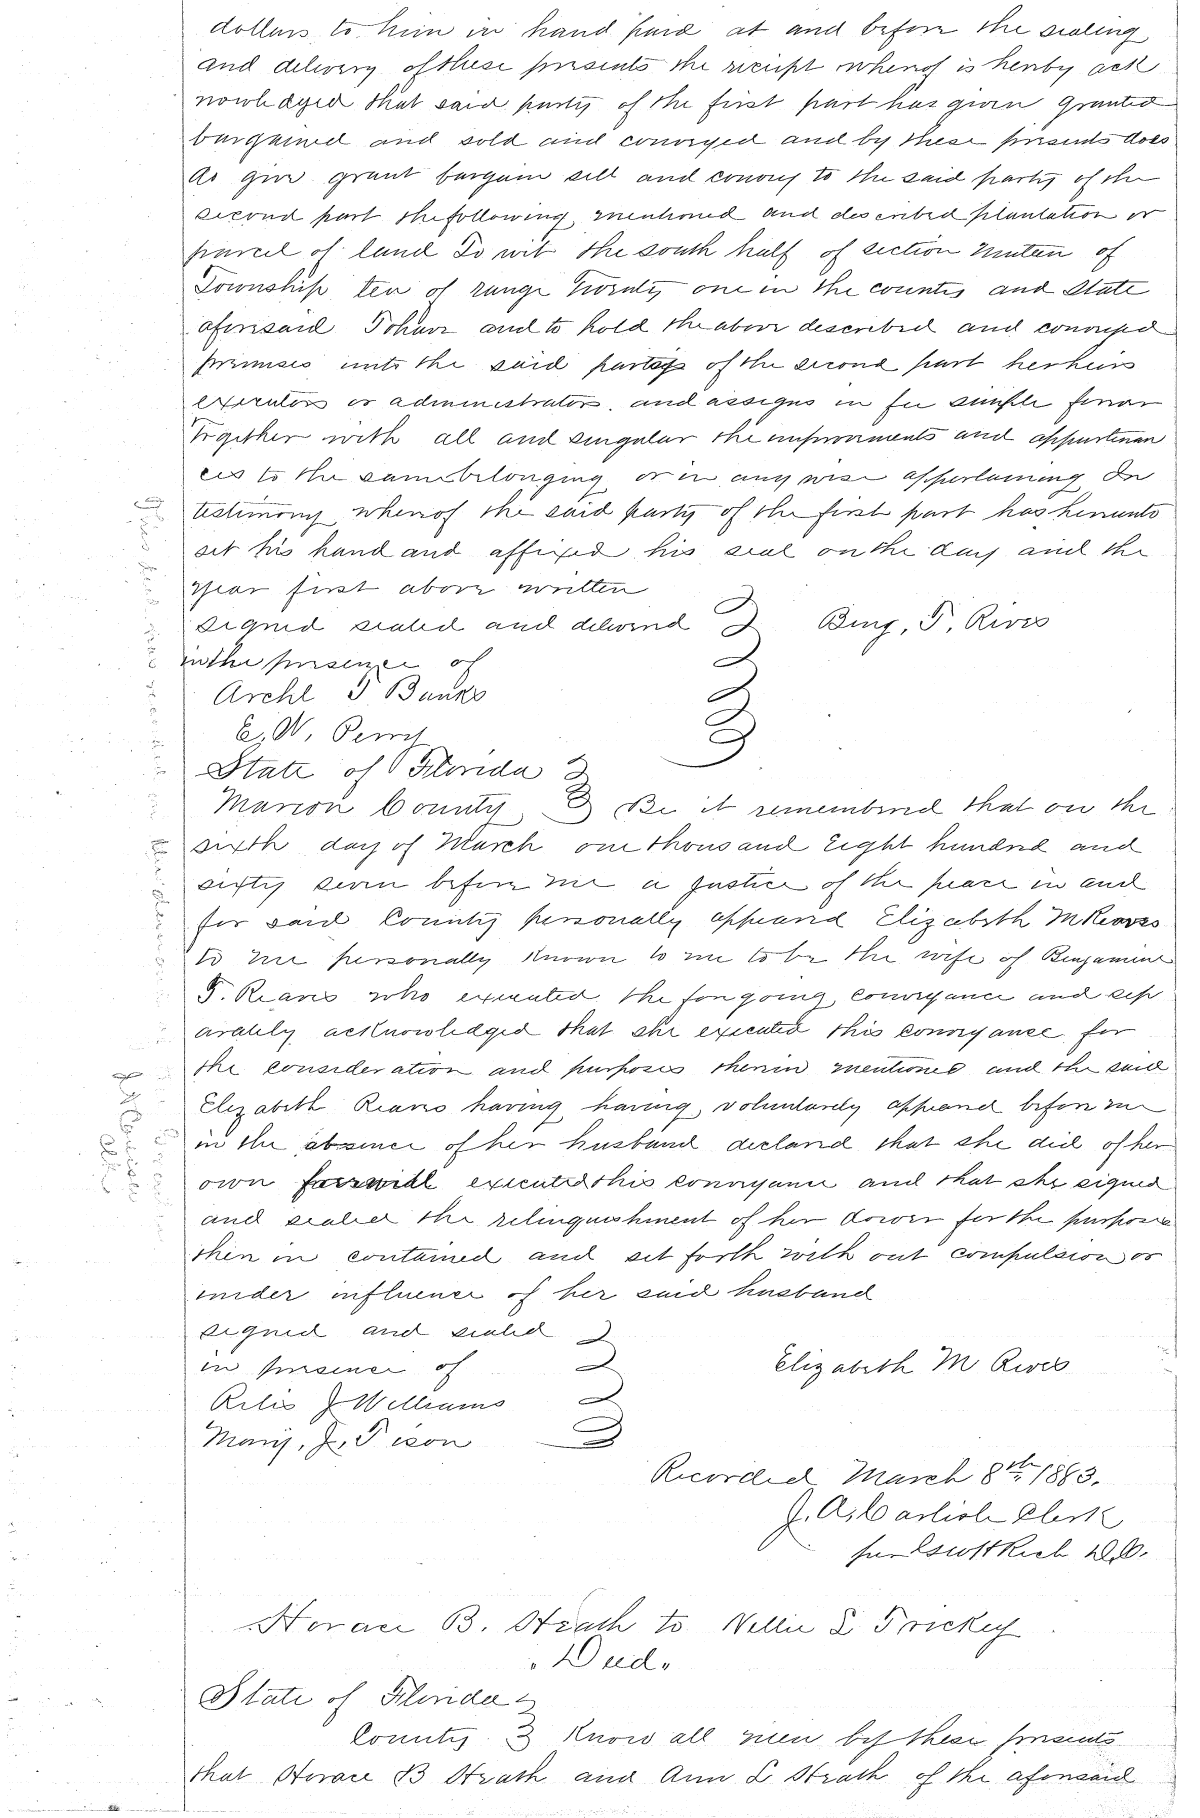 dollars to him in hand paid at and before the sealing
and delivery of these presents the reciept whereof is hereby ack
nowledged that said party of the first part has given granted
bargained and sold and conveyed and by these presents does
do give grant bargain sell and convey to the said party of the
second part the following mentioned and described plantation or
parcel of land To wit the south half of section ninteen of
Township ten of range Twenty one in the county and State
aforesaid To have and to hold the above described and conveyed
premises unto the said party of the second part her heirs
executors or administrators and assigns in fee simple forever
Together with all and singular the improvments and appurtenan
ces to the same belonging or in any wise appertaining In
testimony whereof the said party of the first part has hereunto
set his hand and affixed his seal on the day and the
year first above written
signed sealed and delivered Benj, T, Rives
in the presence of
Archl T Banks
E, W, Perry
State of Florida
Marion County Be it remembered that on the
sixth day of March one thousand Eight hundred and
sixty seven before me a Justice of the peace in and
for said County personally appeared Elizabeth M Reaves
to me personally known to me to be the wife of Benjamine
T. Reaves who executed the foregoing conveyance and sep
arately acknowledged that she executed this conveyance for
the consideration and purposes therein mentioned and the said
Elizabeth Reaves having having voluntarely appeared before me
in the absence of her husband declared that she did of her
own executed this conveyance and that she signed
and sealed the relinquishment of her dower for the purposes
then in contained and set forth with out compulsion or
under influence of her said husband
signed and sealed
in presence of Elizabeth M Rives
J Williams
J,
Recorded March 8th, 1883.
J. A, Carlisle Clerk
per D.C.
Horace B. Strath to Nellie L Trickey
"Deed"
State of Florida
County Know all men by these presents
that Horace B Strath and Ann L Strath of the aforesaid